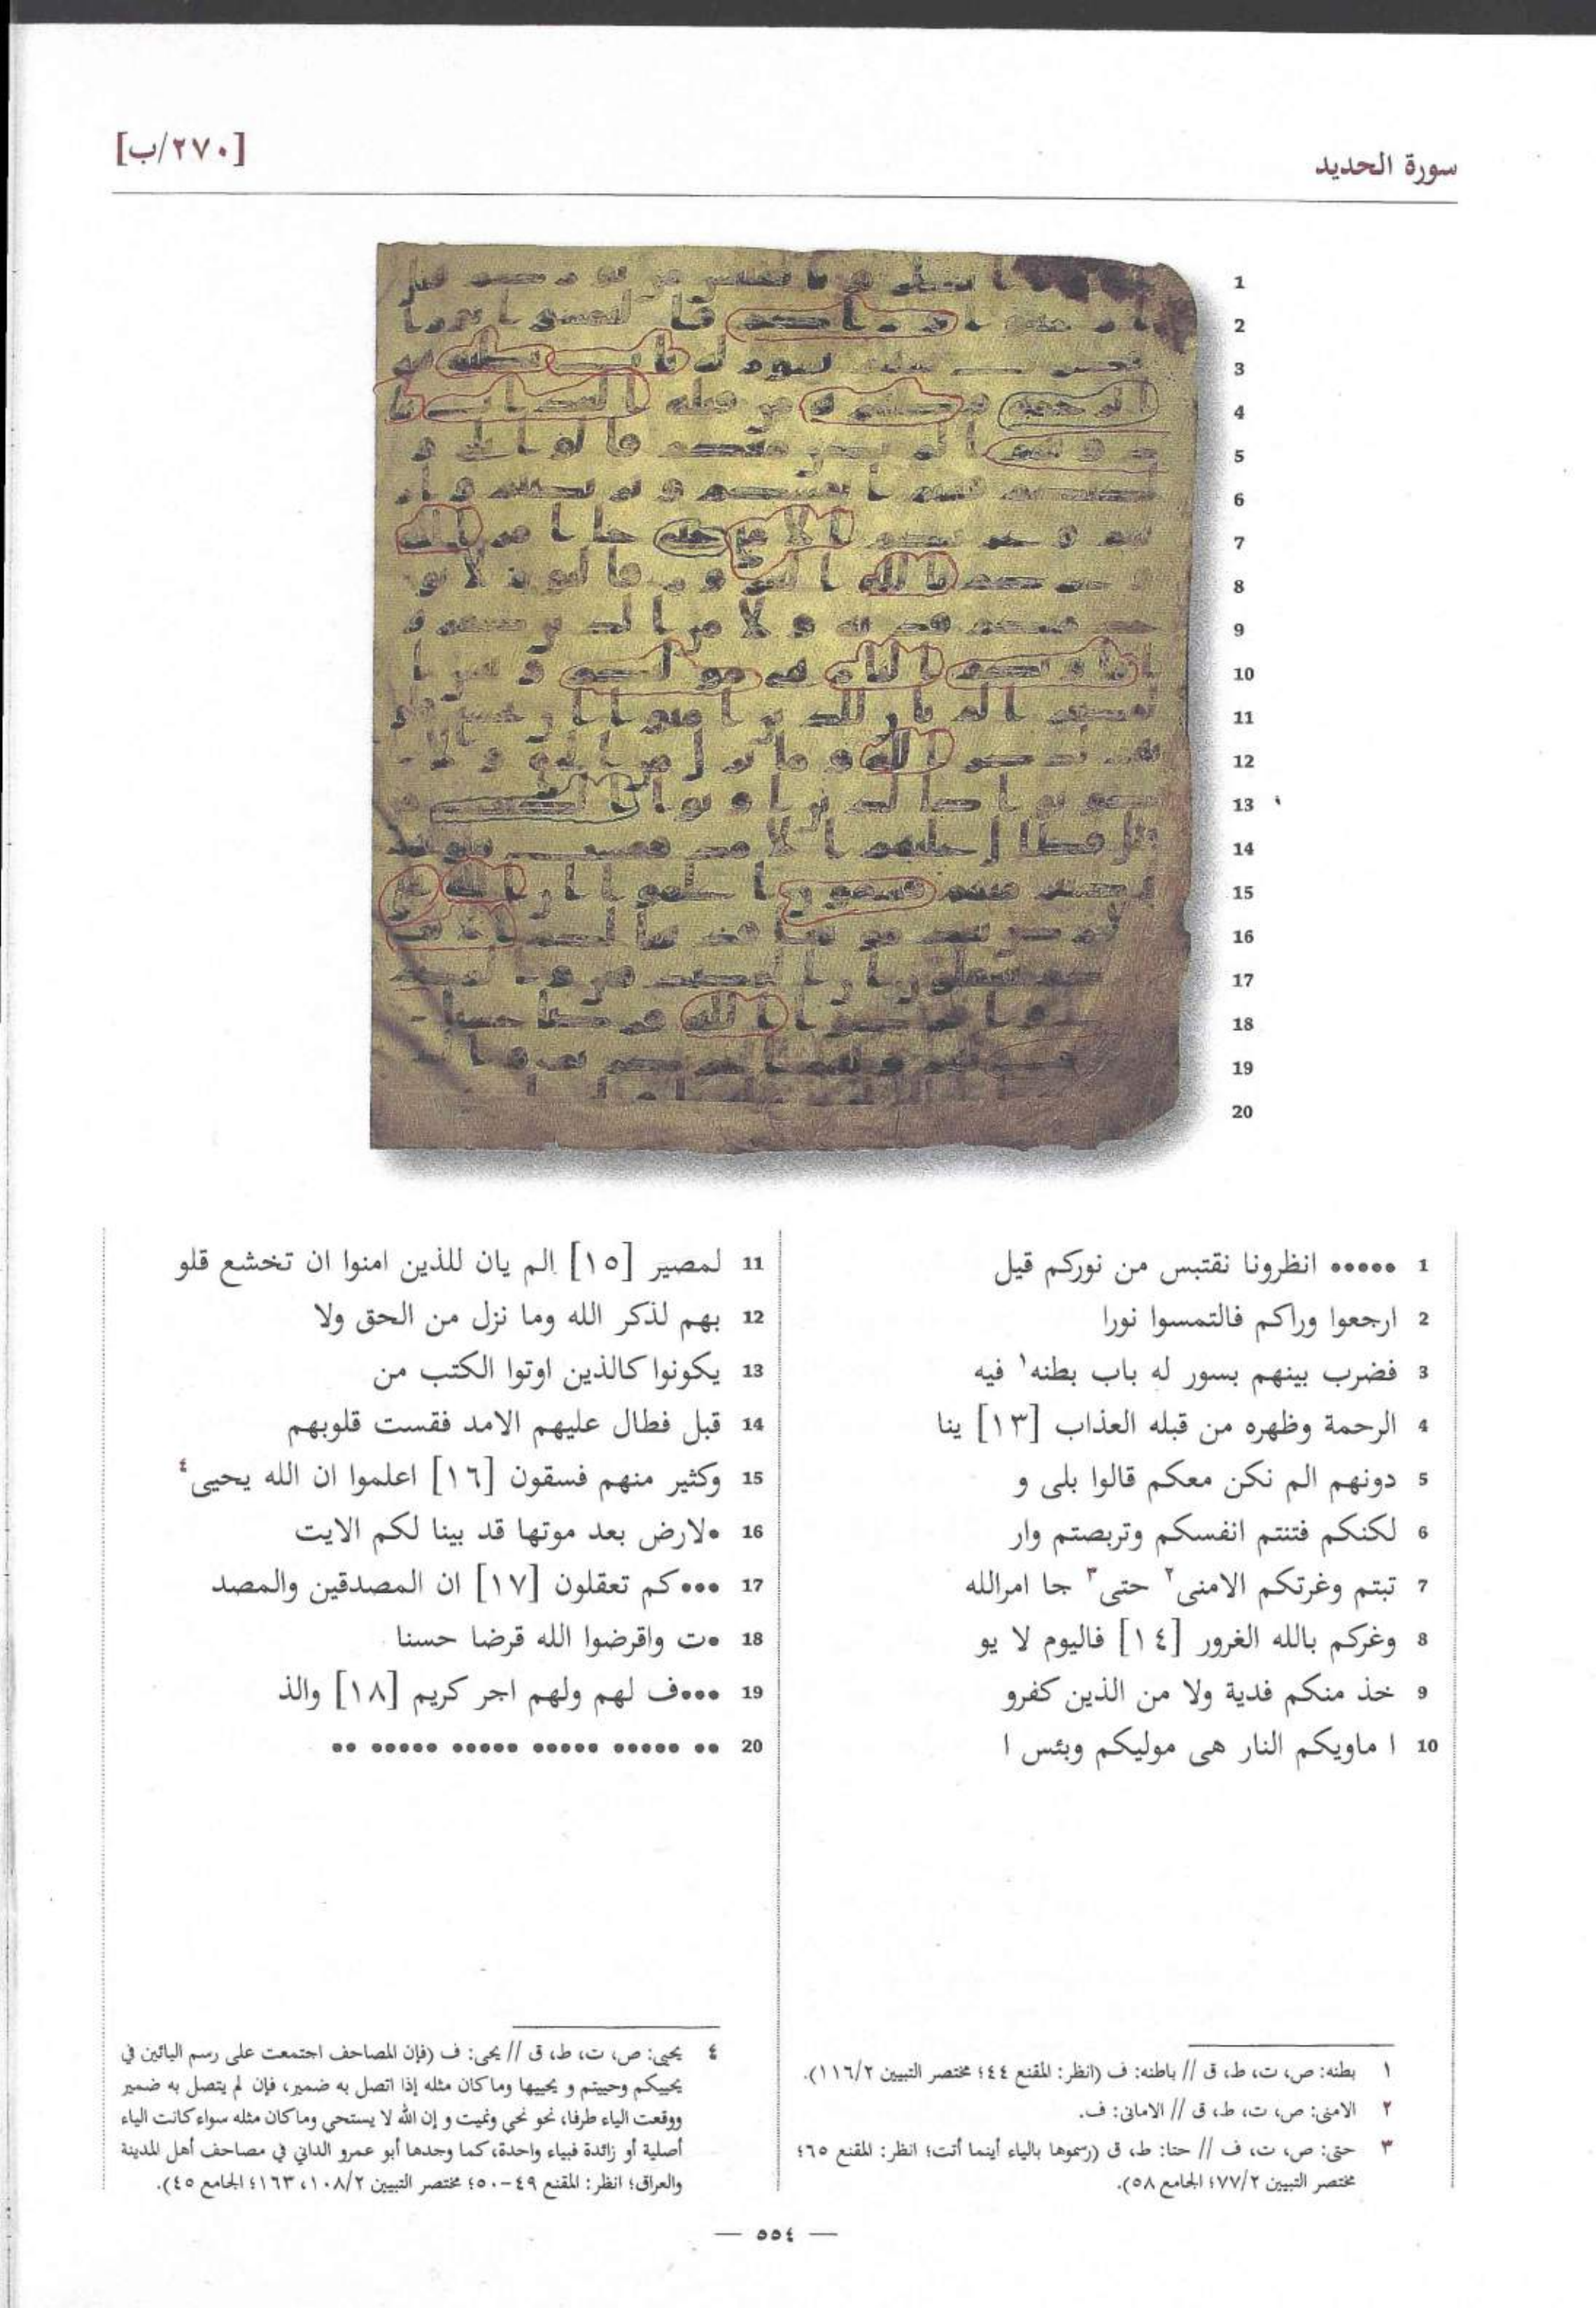 سورة الحديد
[٢٧٠/ب]
1 ••••• انظرونا نقتبس من نوركم قيل
2 ارجعوا وراكم فالتمسوا نورا
3 فضرب بينهم بسور له باب بطنه١ فيه
4 الرحمة وظهره من قبله العذاب [١٣] ينا
5 دونهم الم نكن معكم قالوا بلى و
6 لكنكم فتنتم انفسكم وتربصتم وار
7 تبتم وغرتكم الامنى٢ حتى٣ جا امرالله
8 وغركم بالله الغرور [١٤] فاليوم لا يو
9 خذ منكم فدية ولا من الذين كفرو
10 ا ماويكم النار هى موليكم وبئس ا
11 لمصير [١٥] الم يان للذين امنوا ان تخشع قلو
12 بهم لذكر الله وما نزل من الحق ولا
13 يكونوا كالذين اوتوا الكتب من
14 قبل فطال عليهم الامد فقست قلوبهم
15 وكثير منهم فسقون [١٦] اعلموا ان الله يحيى٤
16 •لارض بعد موتها قد بينا لكم الايت
17 •••كم تعقلون [١٧] ان المصدقين والمصد
18 •ت واقرضوا الله قرضا حسنا
19 •••ف لهم ولهم اجر كريم [١٨] والذ
20 •• ••••• ••••• ••••• ••••• ••
١ بطنه: ص، ت، ط، ق // باطنه: ف (انظر: المقنع ٤٤؛ مختصر التبيين ١١٦/٢).
٢ الامنى: ص، ت، ط، ق // الامانى: ف.
٣ حتى: ص، ت، ف // حتا: ط، ق (رسموها بالياء أينما أتت؛ انظر: المقنع ٦٥؛
مختصر التبيين ٧٧/٢؛ الجامع ٥٨).
٤ يحيى: ص، ت، ط، ق // يحى: ف (فإن المصاحف اجتمعت على رسم اليائين في
يحييكم وحييتم و يحييها وماكان مثله إذا اتصل به ضمير، فإن لم يتصل به ضمير
ووقعت الياء طرفا، نحو نحي ونميت و إن الله لا يستحي وماكان مثله سواء كانت الياء
أصلية أو زائدة فبياء واحدة، كما وجدها أبو عمرو الداني في مصاحف أهل المدينة
والعراق؛ انظر: المقنع ٤٩-٥٠؛ مختصر التبيين ١٠٨/٢، ١٦٣؛ الجامع ٤٥).
— ٥٥٤ —